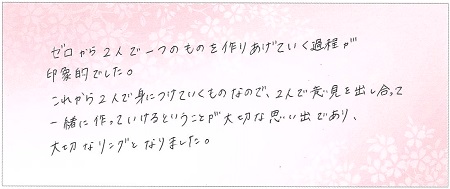 ゼロから2人で一つのものを作りあげていく過程が
印象的でした。
これから2人で身につけていくものなので、2人で意見を出し合って
一緒に作っていけるということが大切な思い出であり、
大切なリングとなりました。